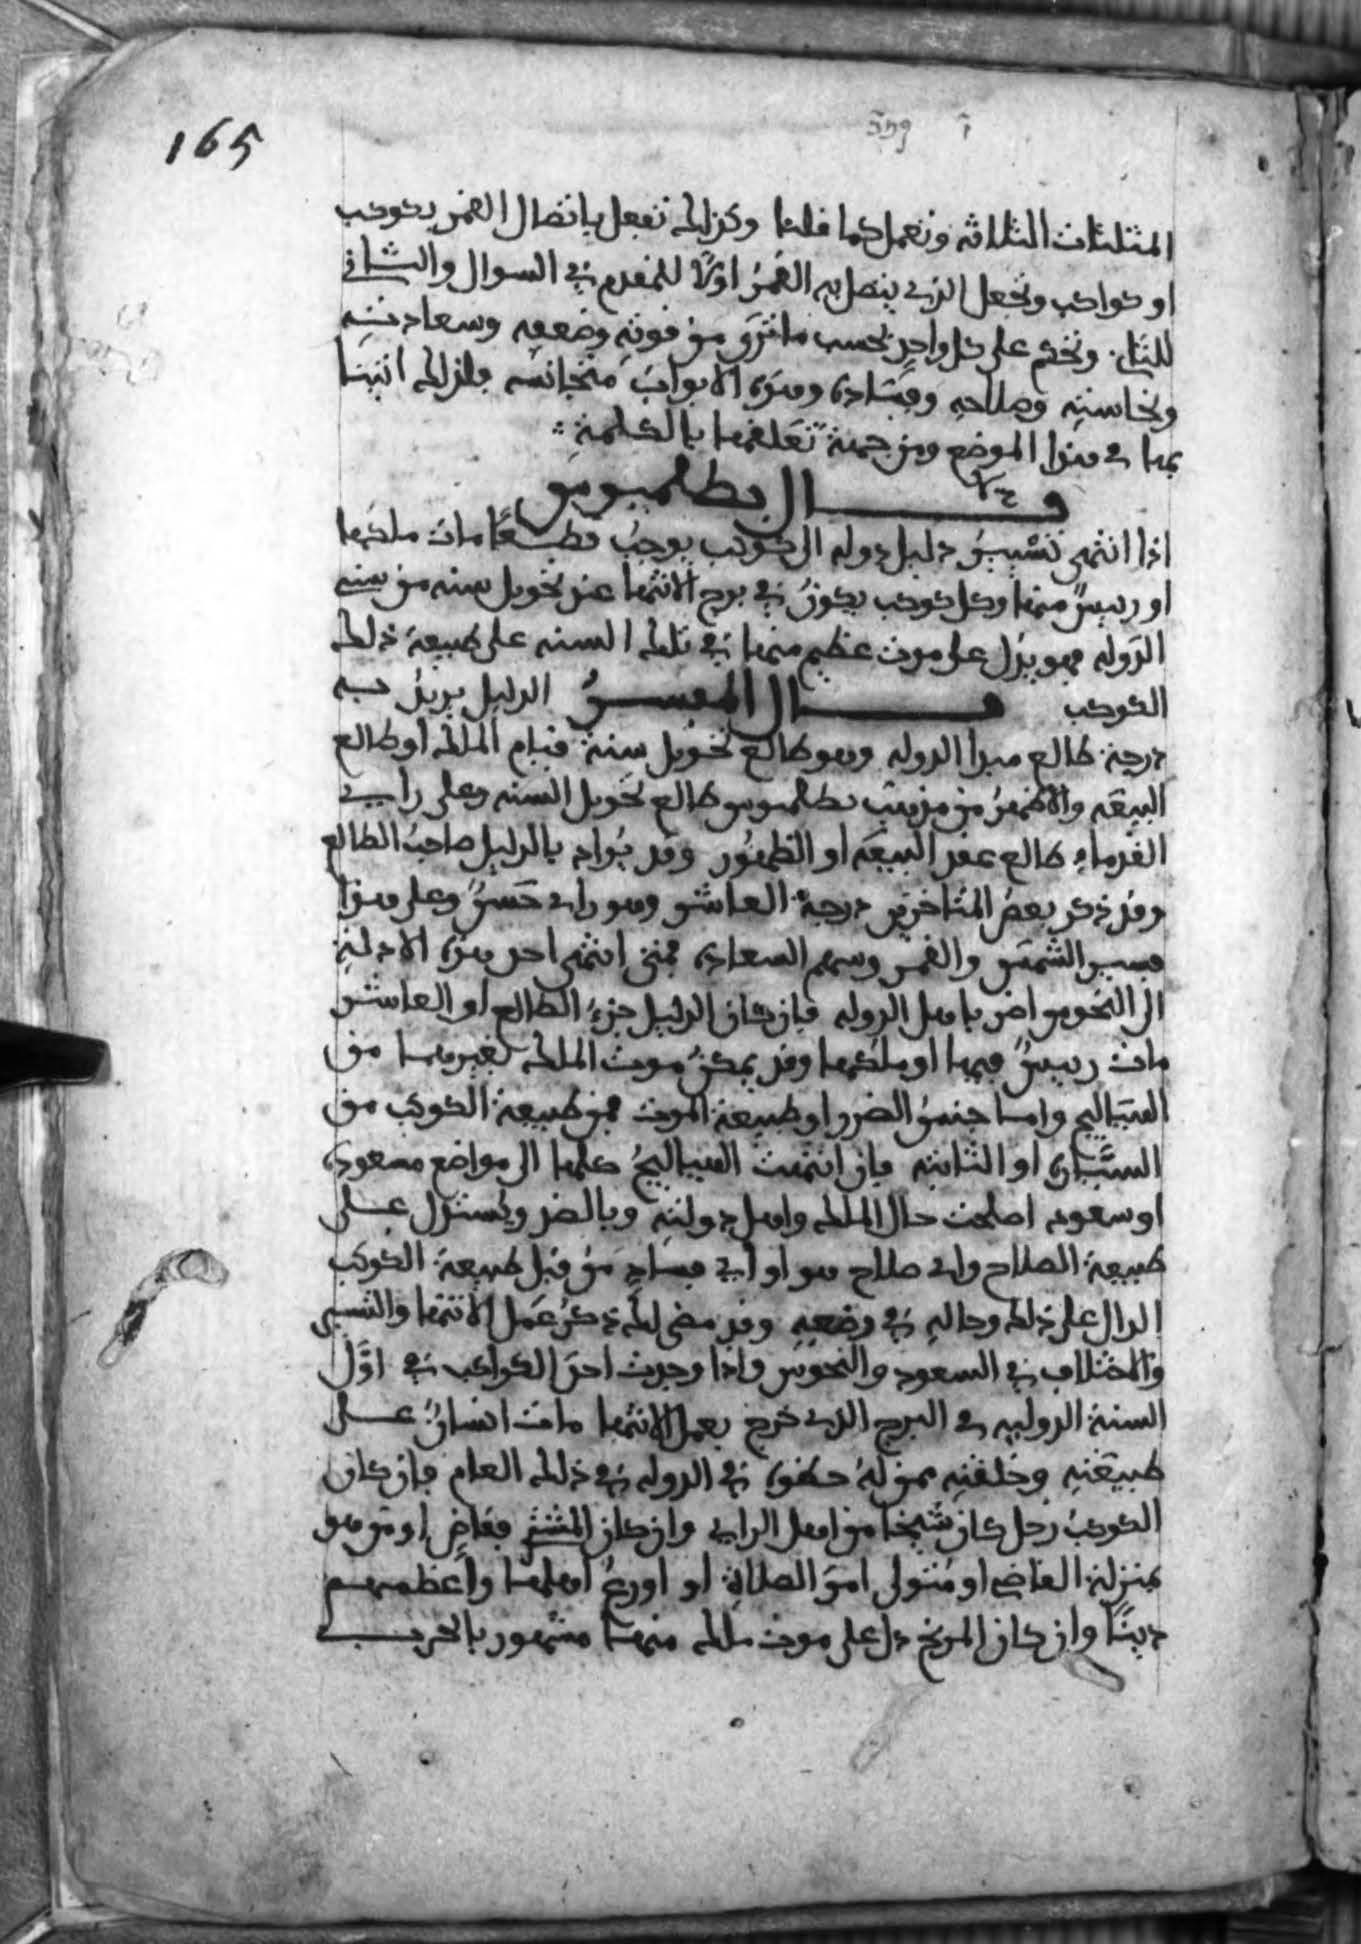 165
المثلثات الثلاثه وتعمل كما قلنا وكذلك تفعل باتصال القمر بكوكب
او كواكب وتجعل الذي يتصل به القمرُ اوّلًا للمقدم في السوال والثاني
للثاني وتحكم على كل واحدٍ بحسب ما ترى من قوته وضعفه وسعادته
ونحاسته وصلاحه وفساده وهذه الابواب متجانسه فلذلك اتينا
بها في هذا الموضع ومن جهة تعلقها بالكلمة
قال بطلميوس
اذا انتهى تسييرُ دليل دوله الى كوكب يوجبُ قطعًا مات ملكها
او رييسٌ منها وكل كوكب يكونُ في برج الانتها عند تحويل سنه من سني
الدوله فهو يدل على موت عظيم منها في تلك السنه على طبيعة ذلك
الكوكب قال المفسرُ الدليل يريدُ به
درجة طالع مبدا الدوله وهو طالع تحويل سنة قيام الملك او طالع
البيعه والاظهرُ من مذهب بطلميوس طالع تحويل السنه وعلى راي
القدماء طالع عقد البيعه او الظهور وقد يُراد بالدليل صاحبُ الطالع
وقد ذكر بعض المتاخرين درجة العاشر وهو راي حسنٌ وعلى هذا
فسير الشمس والقمر وسهم السعاده فمتى انتهى احد هذه الادلة
الى النحوس اضر باهل الدوله فان كان الدليل جزءَ الطالع او العاشر
مات رييسٌ فيها او ملكها وقد يمكنُ موت الملك لغيرهما من
الهياليج وامـا جنسُ الضرر او طبيعة الموت فمن طبيعة الكوكب من
السيّاره او الثابته فان انتهت الهياليجُ كلها الى مواضع مسعوده
او سعود اصلحت حال الملك واهل دولته وبالضد ويستدل على
طبيعة الصلاح واي صلاح هو او اي فسادٍ من قبل طبيعة الكوكب
الدال على ذلك وحاله في وضعه وقد مضى لك ذكرُ عمل الانتها والتسيير
والاختلاف في السعود والنحوس واذا وجدت احد الكواكب في اوّل
السنة الدوليه في البرج الذي خرج بعمل الانتها مات انسانٌ على
طبيعته وخلقته ممن لهُ حظوة في الدوله في ذلك العام فان كان
الكوكبُ زحل كان شيخا من اهل الراي وان كان المشتري فقاضٍ او من هو
بمنزلة القاضي او مُتولى امر الصلاة او اورعُ اهلها واعظمهم
دينًا وان كان المريخ دل على موت ملك منها مشهور بالحرب